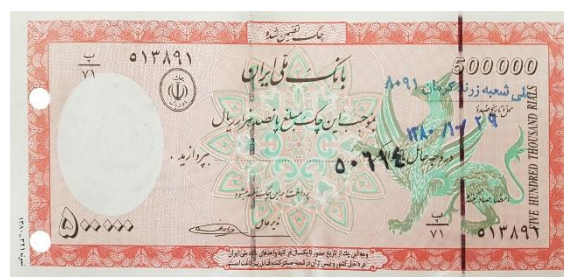 چک تضمین شده
پ
۷۱
۵۱۳۸۹۱
بانک ملی ایران
500000
ملی شعبه زرند کرمان ۸۰۹۱
بموجب این چک مبلغ پانصد هزار ریال
۱۳۸۰/۱۰/۲۹
در وجه حامل
بپردازید .
۵۰۶۹۴
FIVE HUNDRED THOUSAND RIALS
۵۰۰۰۰۰
مدیر عامل
پ
۷۱
۵۱۳۸۹۱